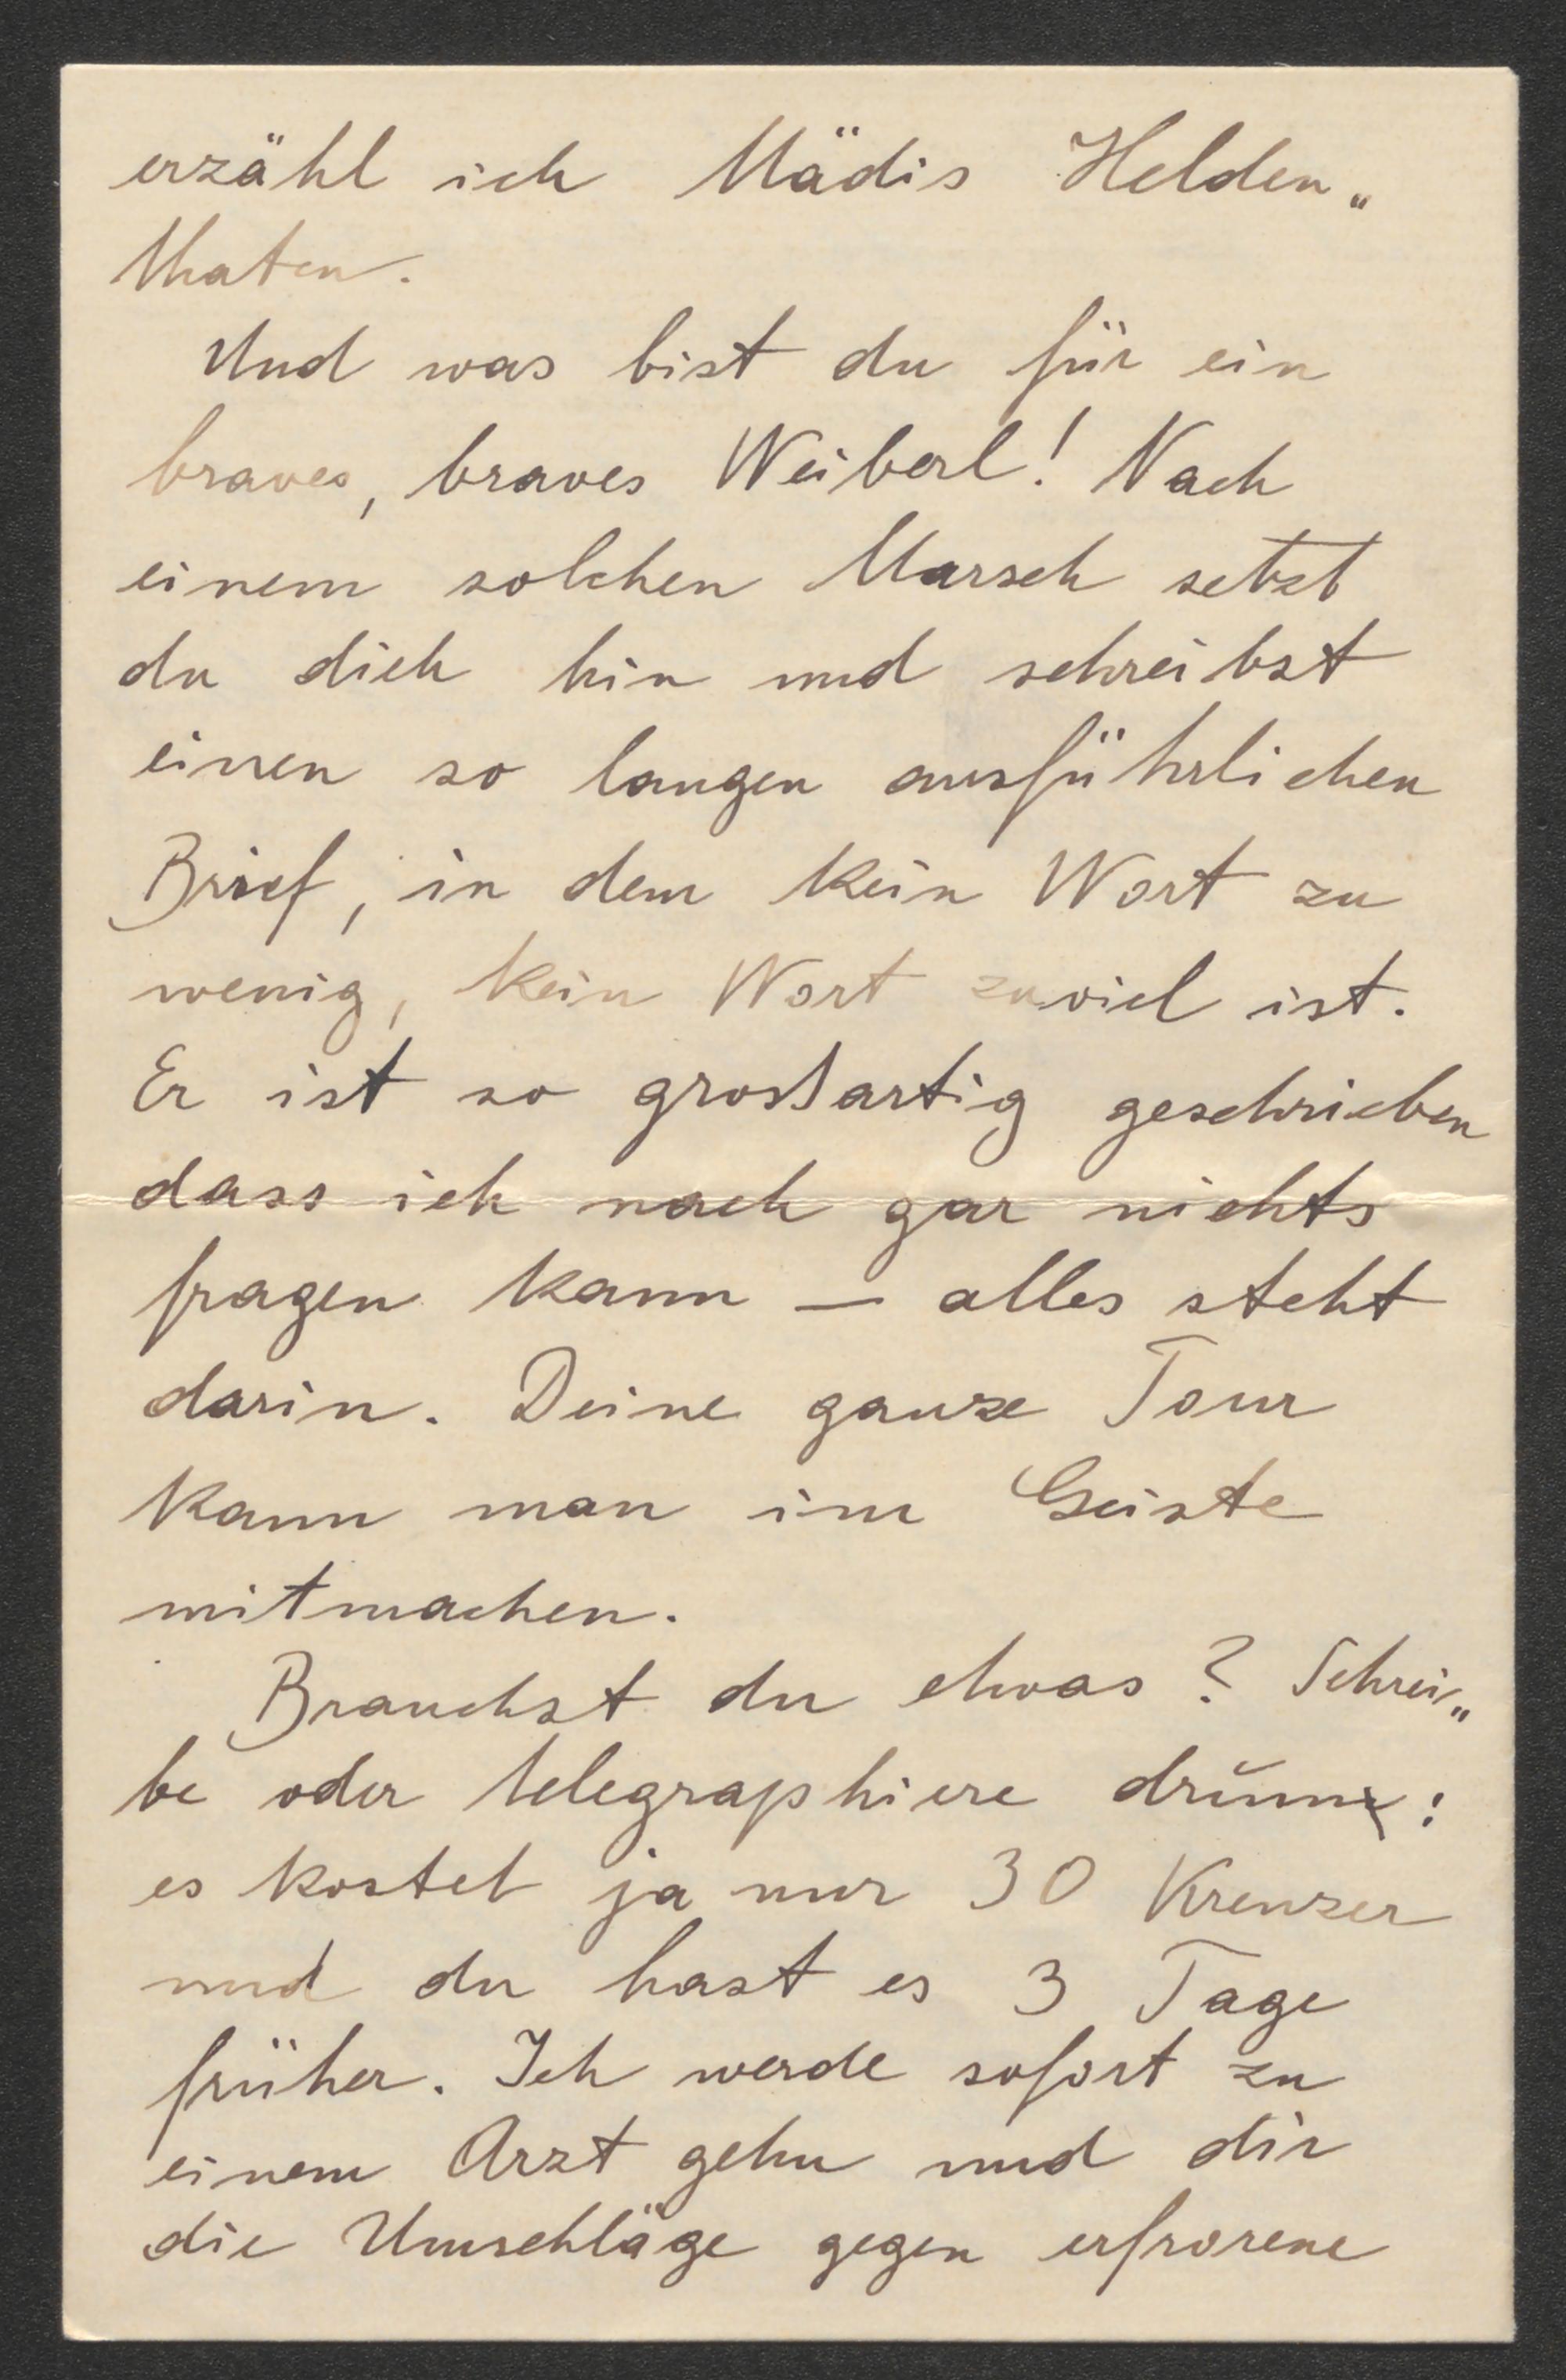 erzähl ich Mädis Helden„
thaten.
Und was bist du für ein
braves, braves Weiberl! Nach
einem solchen Marsch setzt
du dich hin und schreibst
einen so langen ausführlichen
Brief, in dem kein Wort zu
wenig, kein Wort zuviel ist.
Er ist so grossartig geschrieben
dass ich nach gar nichts
fragen kann — alles steht
darin. Deine ganze Tour
kann man im Geiste
mitmachen.
Brauchst du etwas? Schrei„
be oder telegraphiere drum:
es kostet ja nur 30 Kreuzer
und du hast es 3 Tage
früher. Ich werde sofort zu
einem Arzt gehn und dir
die Umschläge gegen erfrorene